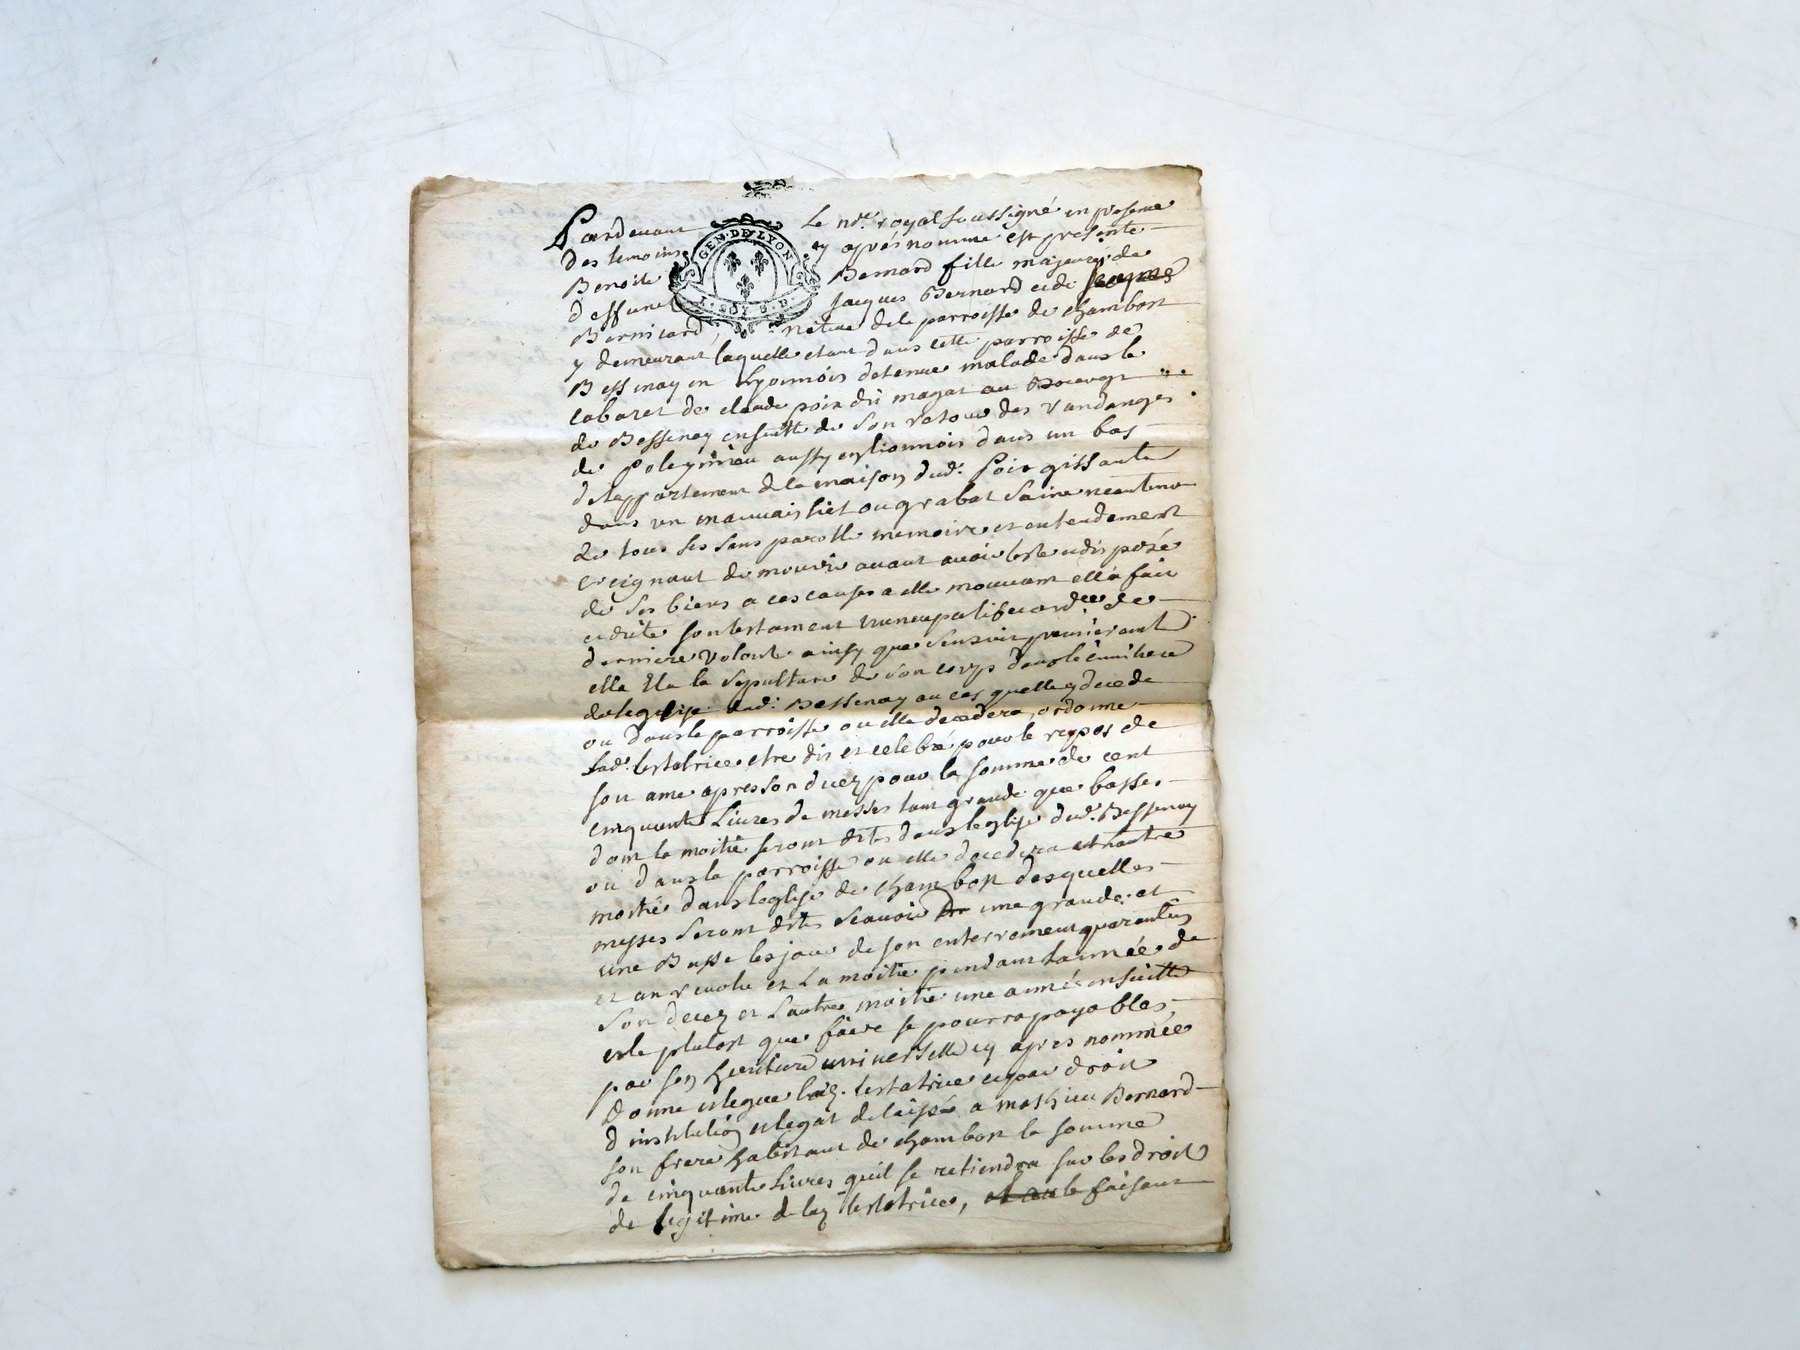 GEN. DE LYON
Pardevant Le nore. royal soussigné en presence
des temoins cy aprés nommé est presente
Benoite Bernard fille majeure de
deffunct Jacques Bernard et de
Bernicard, native de la parroisse de chambost
y demeurant laquelle etant dans cette parroisse de
Bessenay en Lyonnois detenue malade dans le
cabaret de claude poix dit magat au Bourg
de Bessenay ensuitte de son retour des vandanges
de Poleymieu aussy en lionnois dans un bas
dit appartement de la maison dud. Poix gissante
dans un mauvais liet ou grabat saine neantmo
de tous ses sans parolle memoire et entendement
creignant de mourir avant avoir teste et disposé
de ses biens a ces causes a elle mouvant ella fait
et dicte son testament nuncupatif et ordce de
derniere volonté ainsy que sensuit premierant
ella Elu la sepulture de son corp dans le cimitiere
de leglise dud. Bessenay au cas quelle y decede
ou dans la parroisse ou elle decedera, ordonne
lad. testatrice etre dit et celebré pour le repos de
son ame apres son decez pour la somme de cent
cinquente Livres de messes tant grande que basses
dont la moitié seront dites dans leglise dud. Bessenay
ou dans la parroisse ou elle decedera et l'autre
moitié dans leglise de chambost desquelles
messes seront dites scavoir une grande et
une Basse les jour de son enterrement quarantin
et an revolu et La moitié pendant lannée de
son decez et L'autre moitié une année ensuitte
et le plutost que faire se pourra payables
par son heritiere universelle cy apres nommée
Donne et legue lad. testatrice et par droit
d'institution et legat delaisse a mathieu Bernard
son frere habitant de chambost la somme
de cinquante Livres quil se retiendra sur les droit
de legitime de lad. testatrice, le faisant